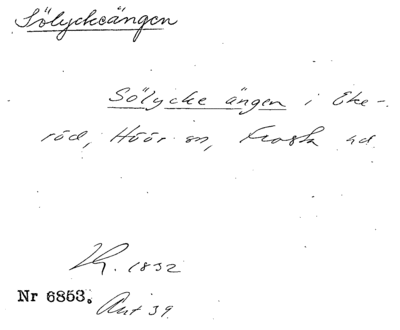 Sölyckeängen
Sölycke ängen i Eke-
röd, Höör sn, Frosta hd
1832
Nr 6853.
Ant 39